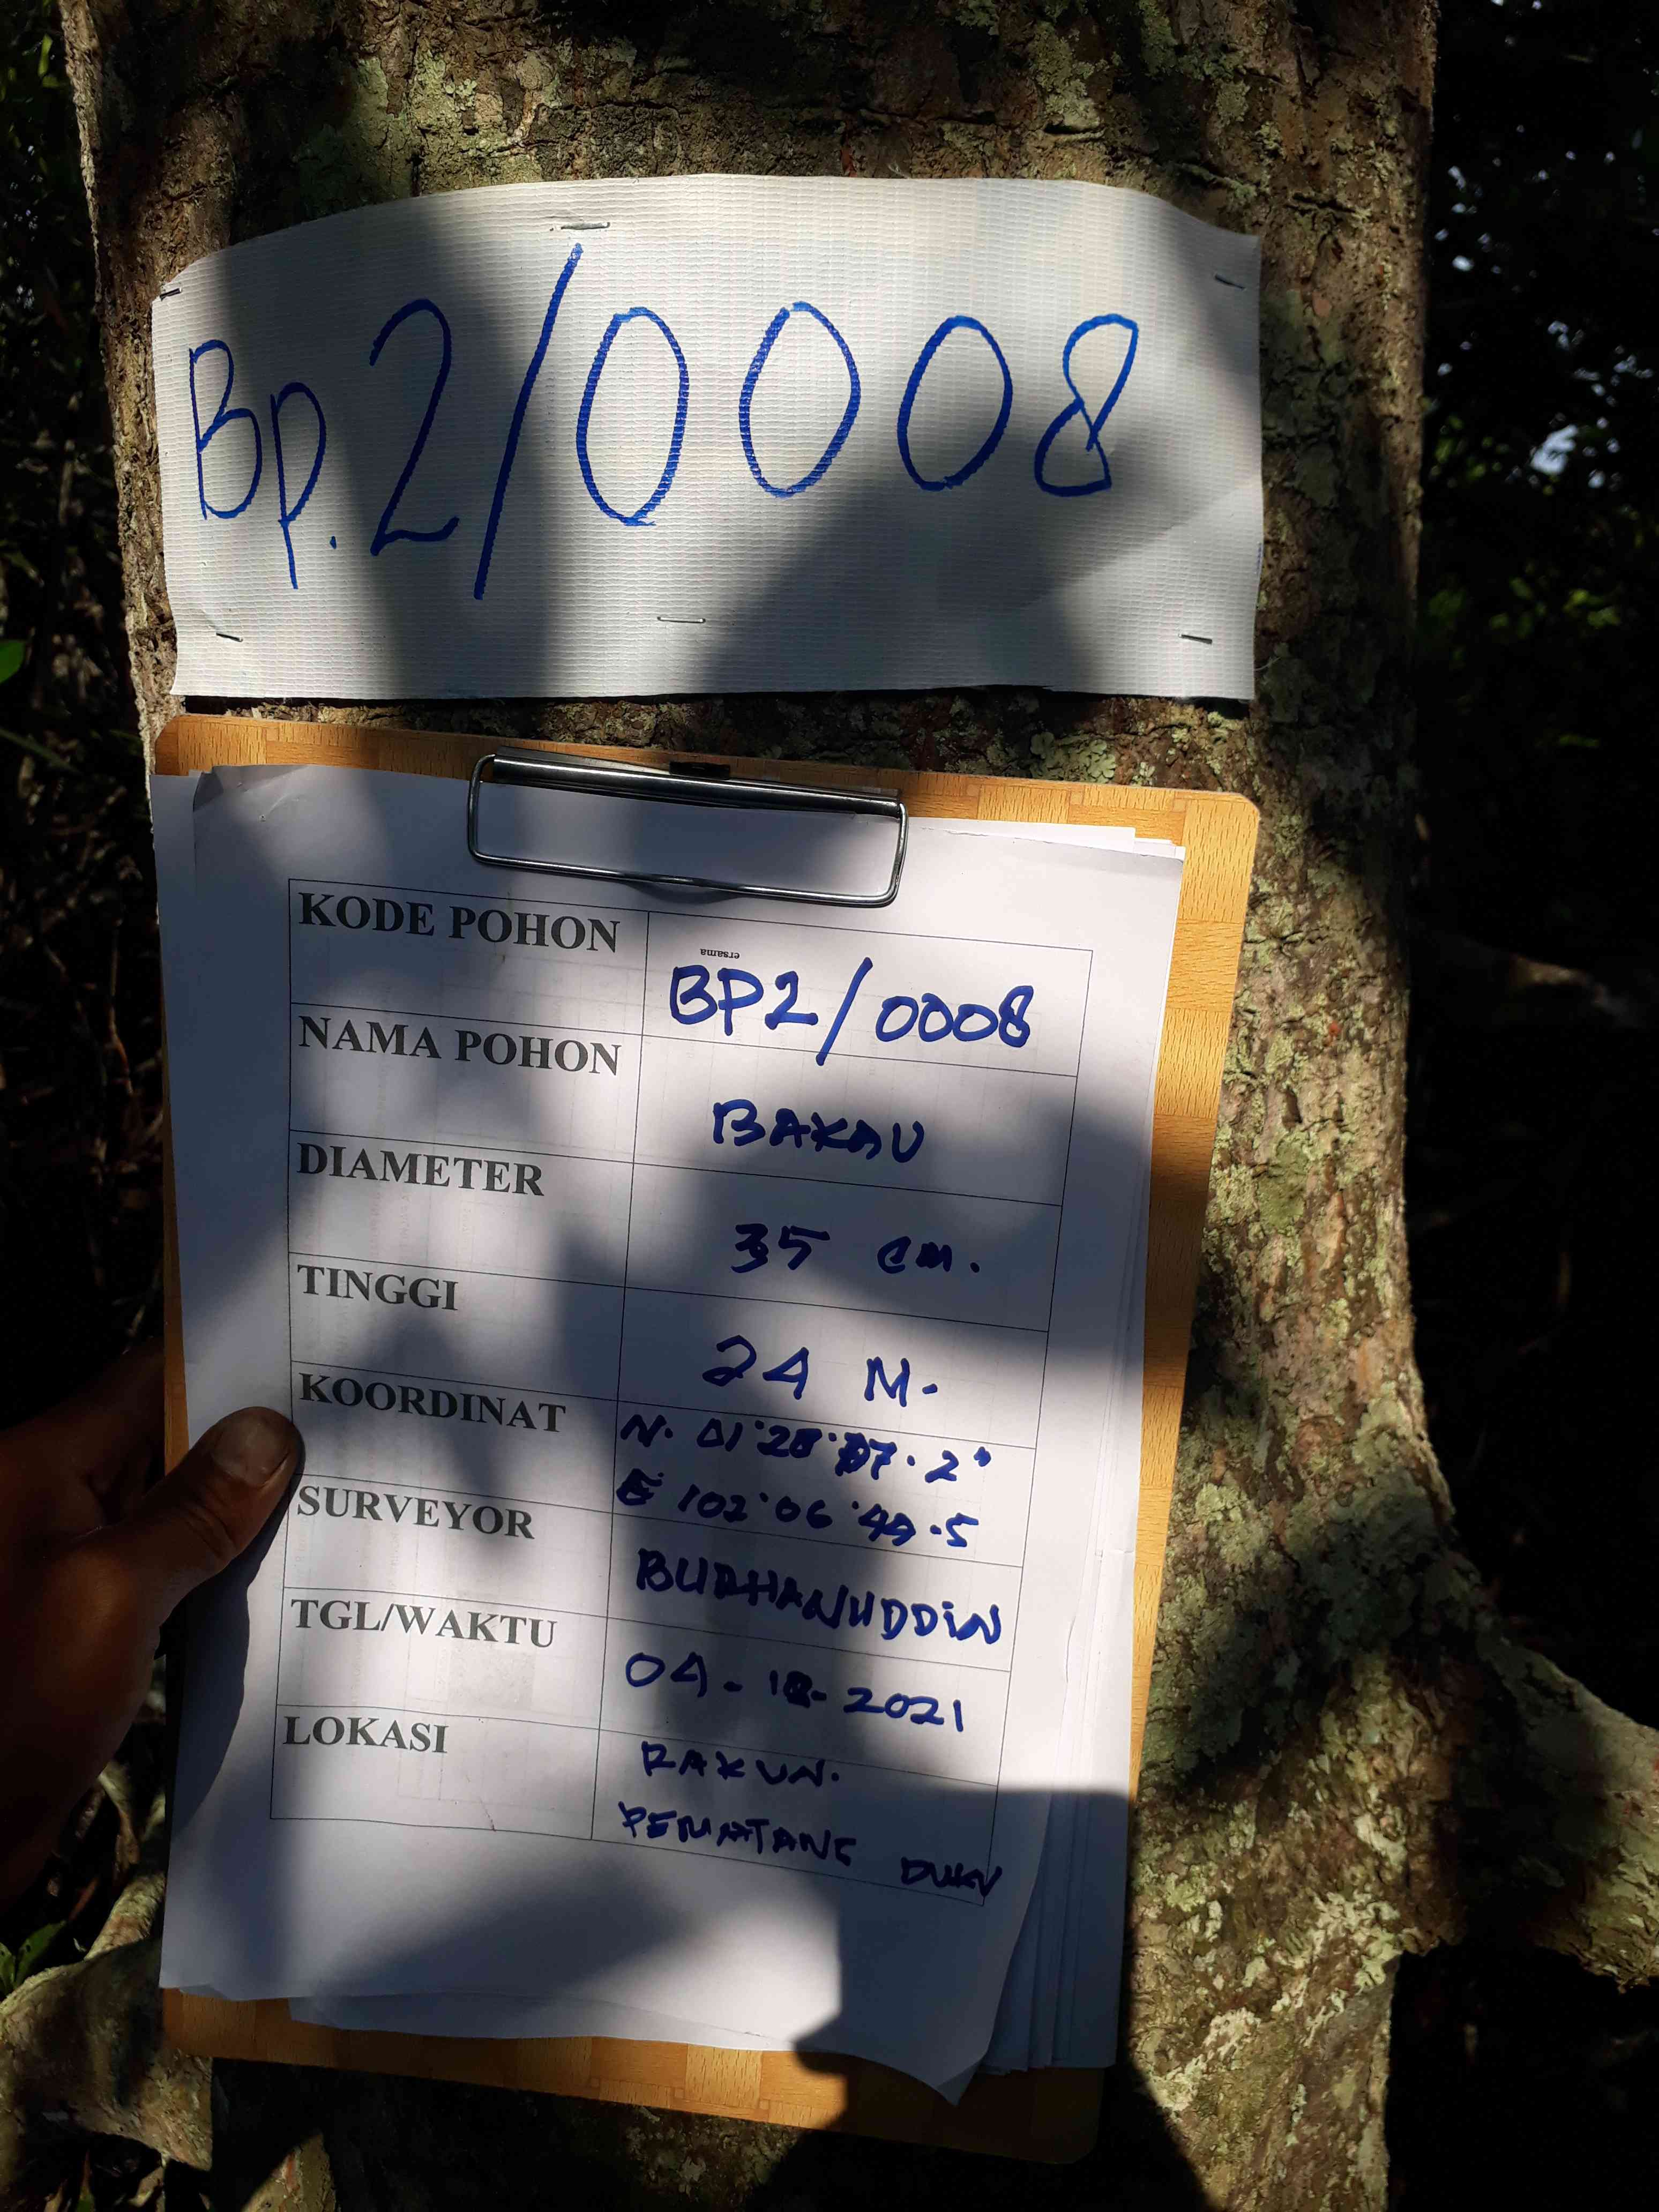 Bp.2/0008
KODE POHON
ersama
BP2/0008
NAMA POHON
BAKAU
DIAMETER
35 cm.
TINGGI
24 M.
KOORDINAT
N. 01°28' 2"
E 102°06' .5
SURVEYOR
BURHANUDDIN
TGL/WAKTU
04- -2021
LOKASI
RAKUN.
PEMATANG DUKU